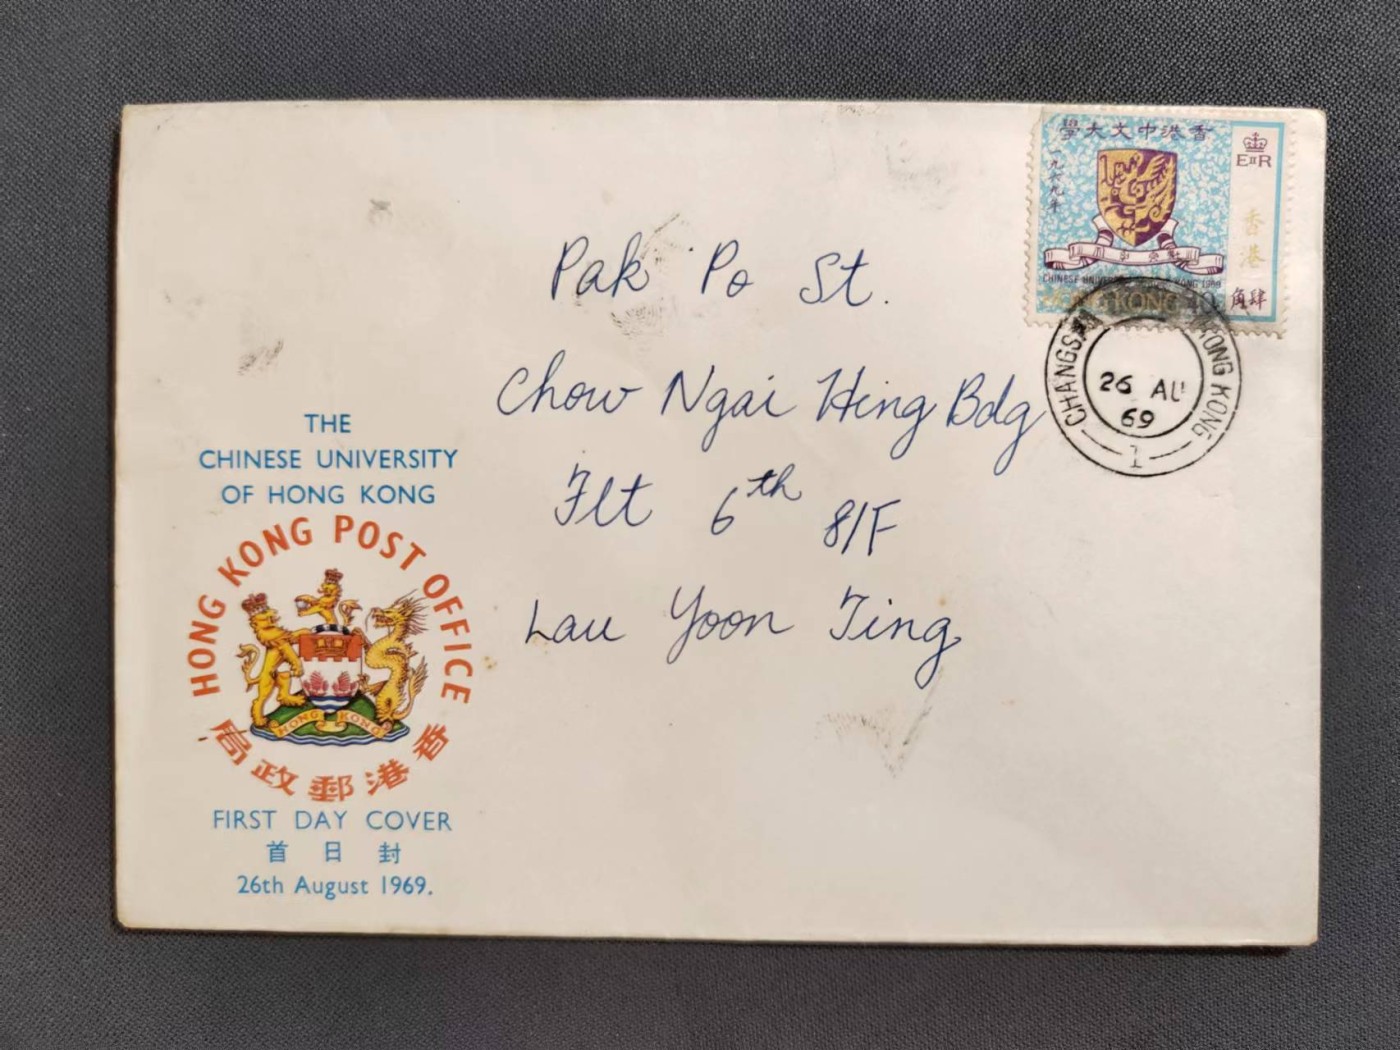 香港中文大學
一九六九年
EIIR
香港
CHINESE UNIVERSITY OF HONG KONG 1969
HONG KONG 40
肆角
CHANGSHA HONG KONG
26 AU
69
1
Pak Po St.
Chow Ngai Hing Bdg
Flt 6th 8/F
Lau Yoon Ting
THE
CHINESE UNIVERSITY
OF HONG KONG
HONG KONG POST OFFICE
HONG KONG
香港郵政局
FIRST DAY COVER
首日封
26th August 1969.